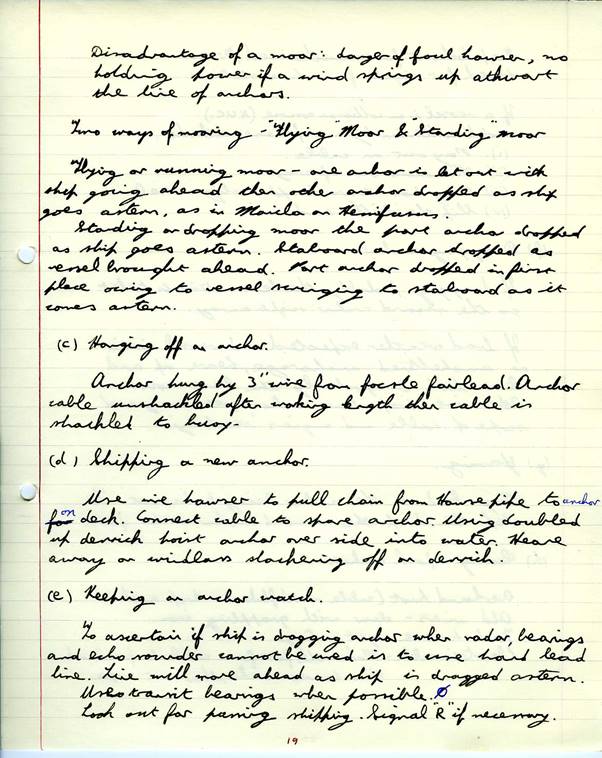 Disadvantage of a moor: danger of foul hawser, no
holding power if a wind springs up athwart
the line of anchors.
Two ways of mooring - "Flying" Moor & "Standing" moor
Flying or running moor - one anchor is let out with
ship going ahead then other anchor dropped as ship
goes astern, as in Manila or
Standing or dropping moor the port anchor dropped
as ship goes astern. Staboard anchor dropped as
vessel brought ahead. Port anchor dropped in first
place owing to vessel swinging to staboard as it
comes astern.
(c) Hanging off an anchor.
Anchor hung by 3" wire from focsle fairlead. Anchor
cable unshackled after working length then cable is
shackled to buoy-
(d) Shipping a new anchor.
Use wire hawser to pull chain from Hawse pipe to anchor
on deck. Connect cable to spare anchor. Using doubled
up derrick hoist anchor over side into water. Heave
away on windlass slackening off on derrick.
(e) Keeping an anchor watch.
To ascertain if ship is dragging anchor when radar, bearings
and echo sounder cannot be used is to use hand lead
line. Line will move ahead as ship is dragged astern.
Use transit bearings when possible.
Look out for passing shipping. Signal "R" if necessary.
19